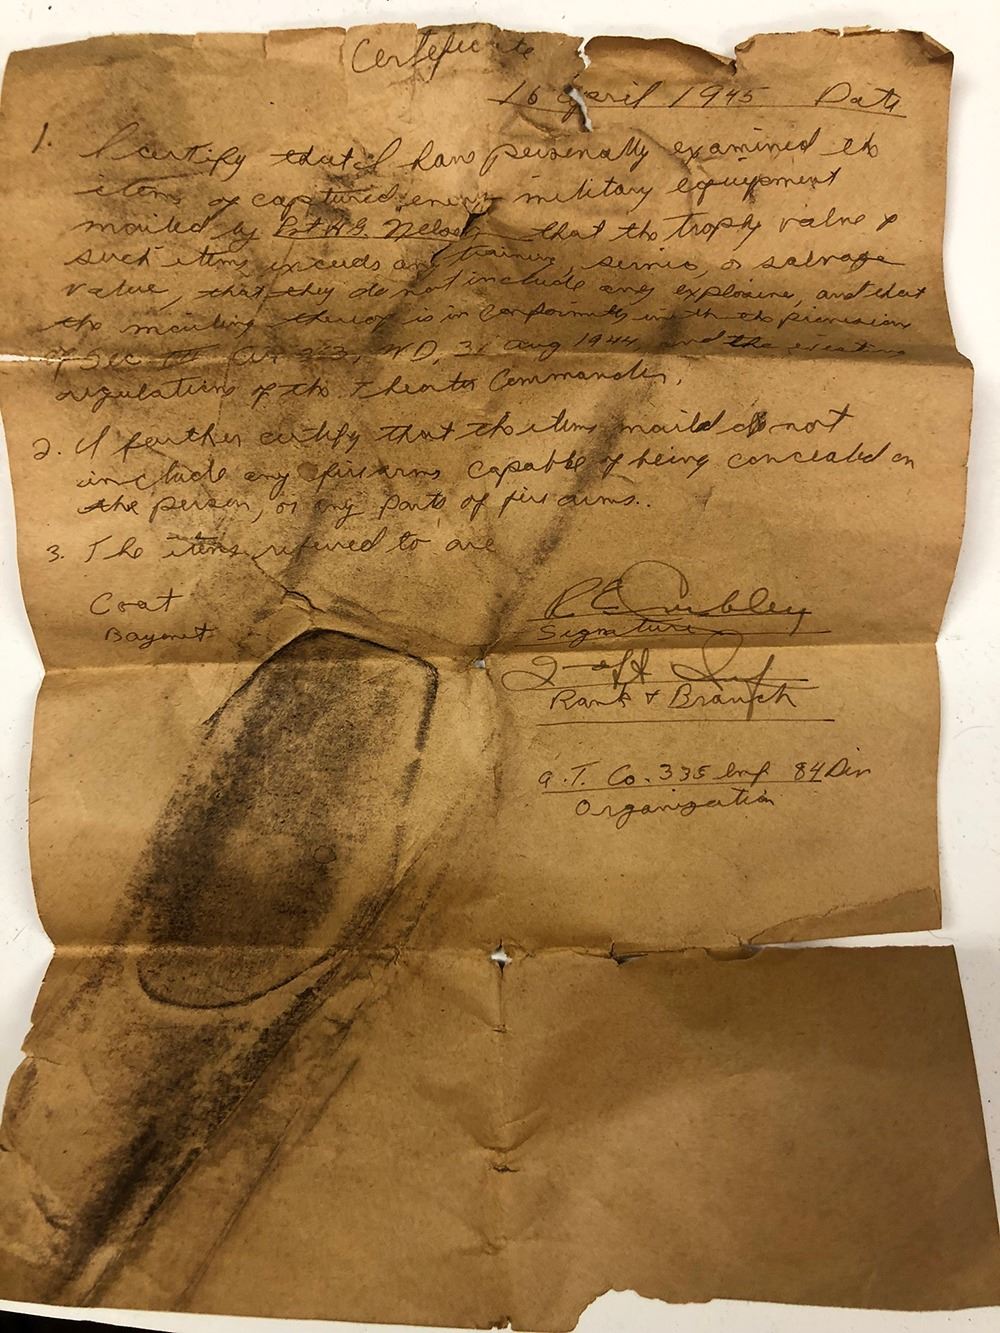 Certificate
16 April 1945 Date
1. I certify that I have personally examined the
items of captured enemy military equipment
mailed by Pvt H.G. Nelson that the trophy value of
such items exceeds any training, service, or salvage
value, that they do not include any explosive, and that
the mailing thereof is in conformity with the provision
of Sec Cir 353, WD, 31 Aug 1944 and the existing
regulations of the Theater Commander.
2. I further certify that the items mailed do not
include any firearms capable of being concealed on
the person, or any parts of firearms..
3. The items refered to are
Coat
Bayonet
Signature
Inf
Rank & Branch
A.T. Co. 335 Inf 84 Div
Organization